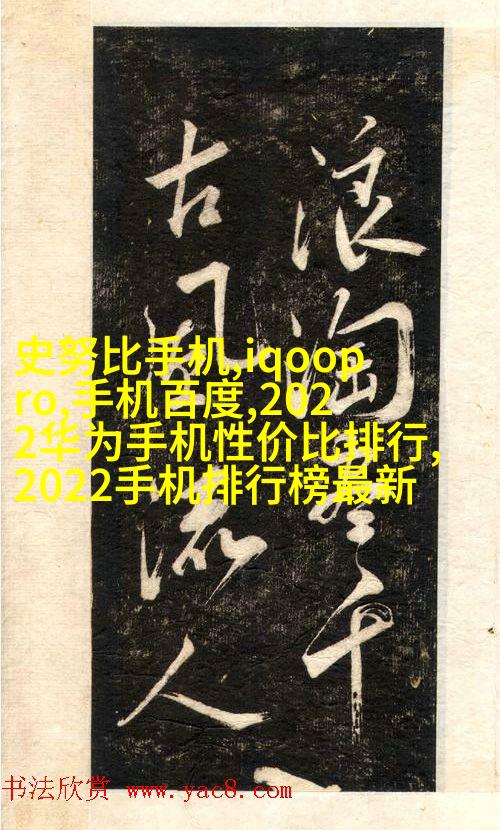 浪淘千
古風流人
史努比手机,iqoop
ro,手机百度,202
2华为手机性价比排行,
2022手机排行榜最新
书法欣赏 www.yac8.com